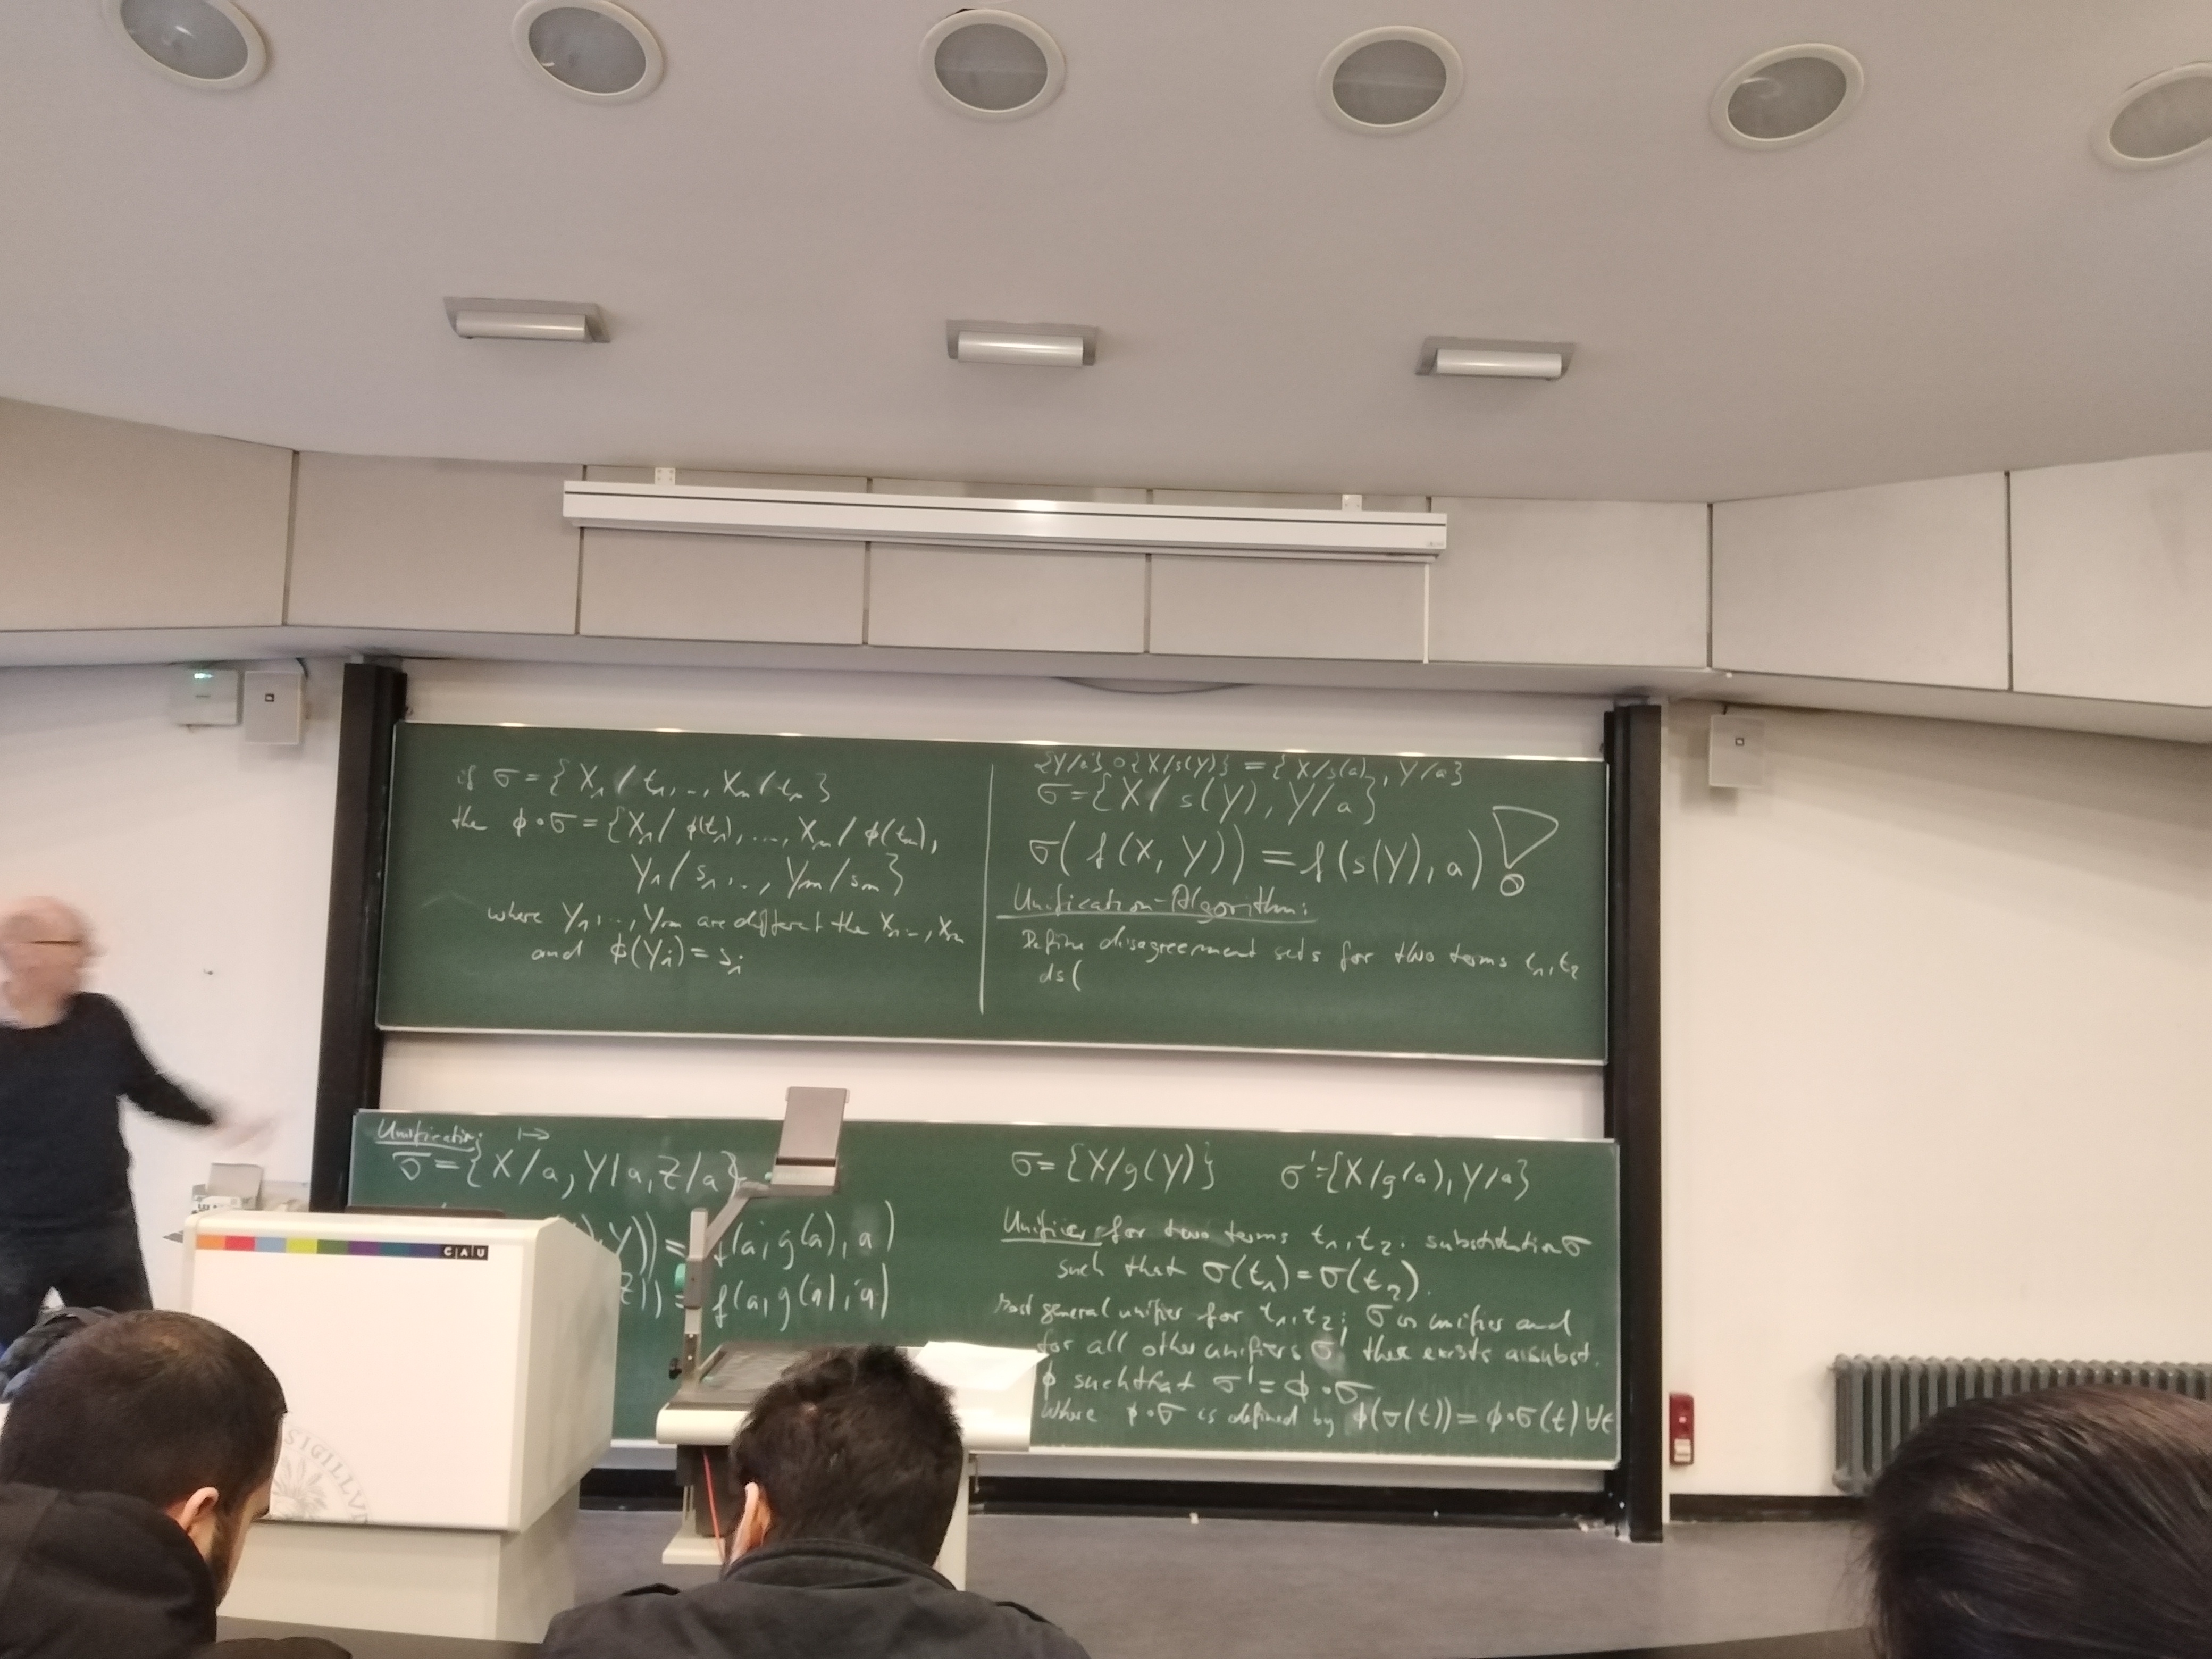 if σ = { X₁ / t₁, .., Xₙ / tₙ }
the φ∘σ = { X₁ / φ(t₁), ..., Xₙ / φ(tₙ),
Y₁ / s₁, .., Yₘ / sₘ }
where Y₁, .., Yₘ are different the X₁, .., Xₙ
and φ(Yᵢ) = sᵢ
{Y/a} ∘ {X/s(Y)} = { X/s(a), Y/a }
σ = { X / s(Y), Y/a }
σ( f(X, Y)) = f(s(Y), a) !
Unification-Algorithm:
Define disagreement sets for two terms t₁, t₂
ds(
Unification: ↦
σ = { X/a, Y/a, Z/a }
, Y)) = f(a, g(a), a)
Z)) = f(a, g(a), a)
σ = {X/g(Y)} σ' = {X/g(a), Y/a}
Unifier for two terms t₁, t₂: substitution σ
such that σ(t₁) = σ(t₂).
Most general unifier for t₁, t₂: σ is unifier and
for all other unifiers σ' there exists a subst.
φ such that σ' = φ∘σ
where φ∘σ is defined by φ(σ(t)) = φ∘σ(t) ∀t
C|A|U
SIGILLV